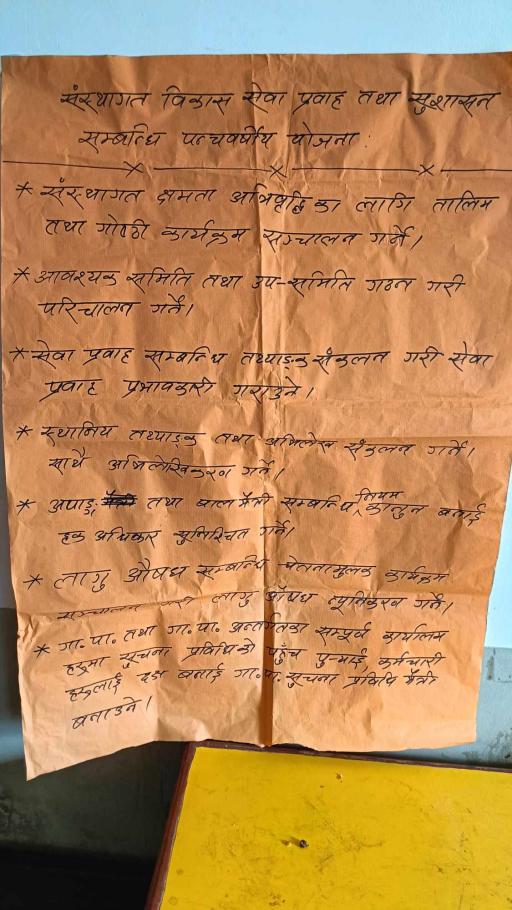 संस्थागत विकास सेवा प्रवाह तथा सुशासन
सम्बन्धि पन्चवर्षीय योजना :
* संस्थागत क्षमता अभिवृद्धिका लागि तालिम
तथा गोष्ठी कार्यक्रम सञ्चालन गर्ने।
* आवश्यक समिति तथा उप-समिति गठन गरी
परिचालन गर्ने।
* सेवा प्रवाह सम्बन्धि तथ्याङ्क संकलन गरी सेवा
प्रवाह प्रभावकारी गराउने।
* स्थानिय तथ्याङ्क तथा अभिलेख संकलन गर्ने।
साथै अभिलेखिकरण गर्ने।
* अपाङ्ग तथा बाल मैत्री सम्बन्धि नियम कानुन बनाई
हक अधिकार सुनिश्चित गर्ने।
* लागु औषध सम्बन्धि चेतनामुलक कार्यक्रम
सञ्चालन गरी लागु औषध न्यूनिकरण गर्ने।
* गा.पा. तथा गा.पा. अन्तर्गतका सम्पूर्ण कार्यालय
हरुमा सूचना प्रविधिको पहुँच पुर्‍याई, कर्मचारी
हरुलाई दक्ष बनाई गा.पा. सूचना प्रविधि मैत्री
बनाउने।